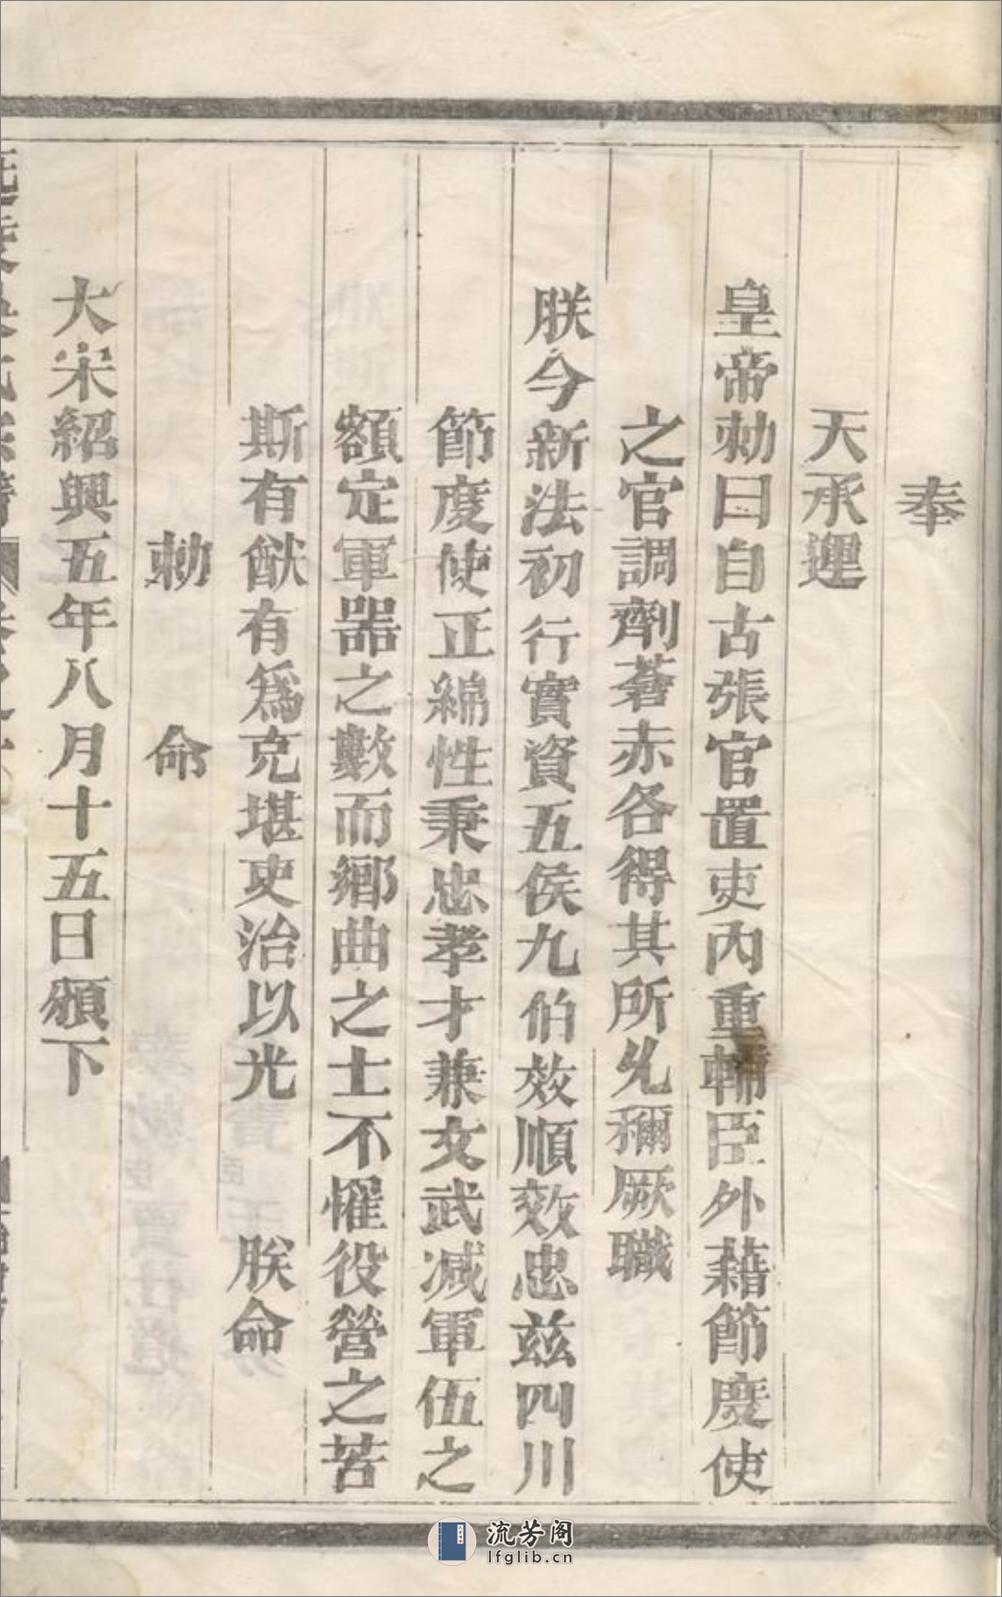 奉
天承運
皇帝勅曰自古張官置吏內重輔臣外藉節度使
之官調劑蒼赤各得其所允稱厥職
朕今新法初行實資五侯九伯效順效忠兹四川
節度使正綿性秉忠孝才兼文武减軍伍之
額定軍器之數而鄉曲之士不懼役營之苦
斯有猷有為克堪吏治以光
朕命
勅命
大宋紹興五年八月十五日頒下
流芳阁
lfglib.cn